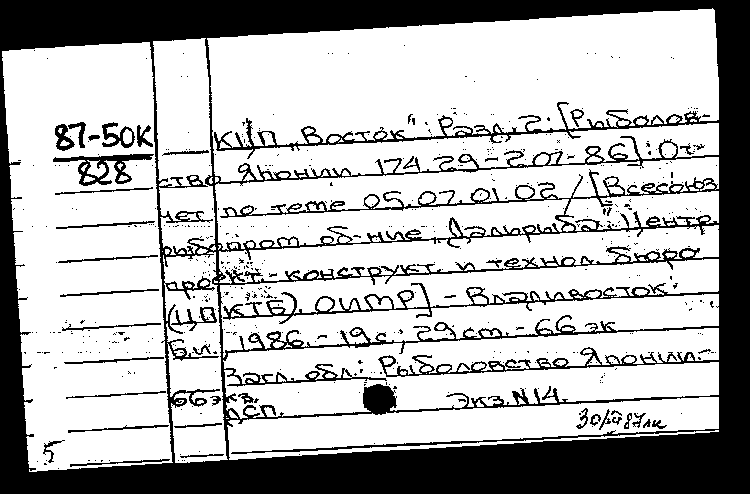 87-50К
828
КЦП „Восток": Разд. 2: [Рыболов-
ство Японии. 174.29-2.07-86]: От-
чет по теме 05.07.01.02 / [Всесоюз.
рыбопром. об-ние „Дальрыба". Центр.
проект.-конструкт. и технол. бюро
(ЦПКТБ). ОИМР] - Владивосток:
Б.и., 1986. - 19 с; 29 cm. - 66 эк
Загл. обл.: Рыболовство Японии.-
66 экз.
ДСП. Экз. N 14.
5